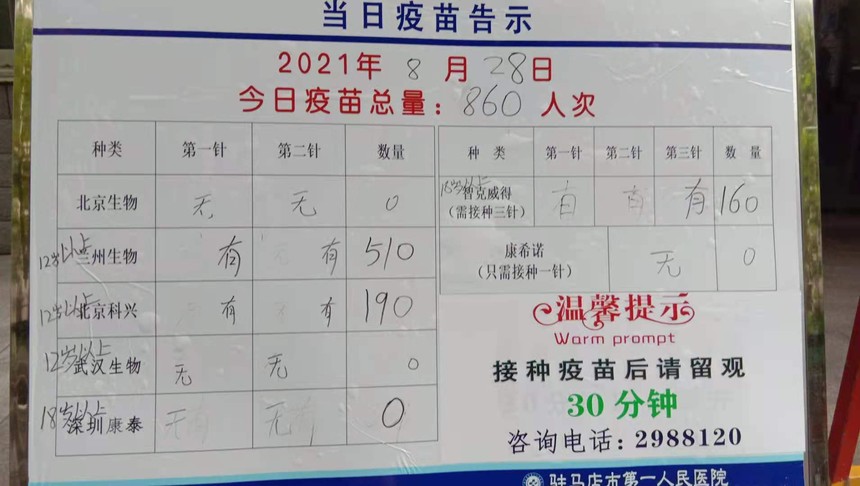 当日疫苗告示
2021年 8 月 28日
今日疫苗总量：860 人次
种类 第一针 第二针 数量
北京生物 无 无 0
12岁以上 兰州生物 有 有 510
12岁以上 北京科兴 有 有 190
12岁以上 武汉生物 无 无 0
18岁以上 深圳康泰 无 无 0
种 类 第一针 第二针 第三针 数 量
18岁以上 智克威得 有 160
(需接种三针)
康希诺 无 0
(只需接种一针)
温馨提示
Warm prompt
接种疫苗后请留观
30 分钟
咨询电话：2988120
驻马店市第一人民医院